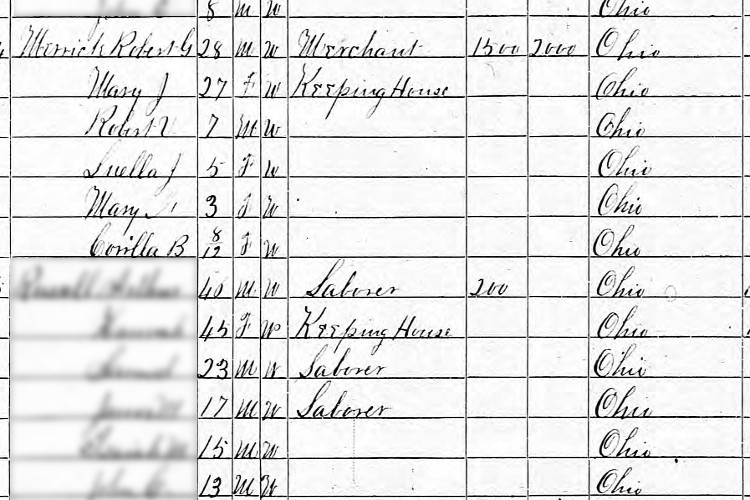 8 M W Ohio
Merrick Robert G 28 M W Merchant 1500 2000 Ohio
Mary J 27 F W Keeping House Ohio
Robert 7 M W Ohio
Luella J 5 F W Ohio
Mary 3 F W Ohio
Corilla B 8/12 F W Ohio
M W Laborer 200 Ohio
45 F W Keeping House Ohio
23 M W Laborer Ohio
17 M W Laborer Ohio
15 M W Ohio
13 M W Ohio